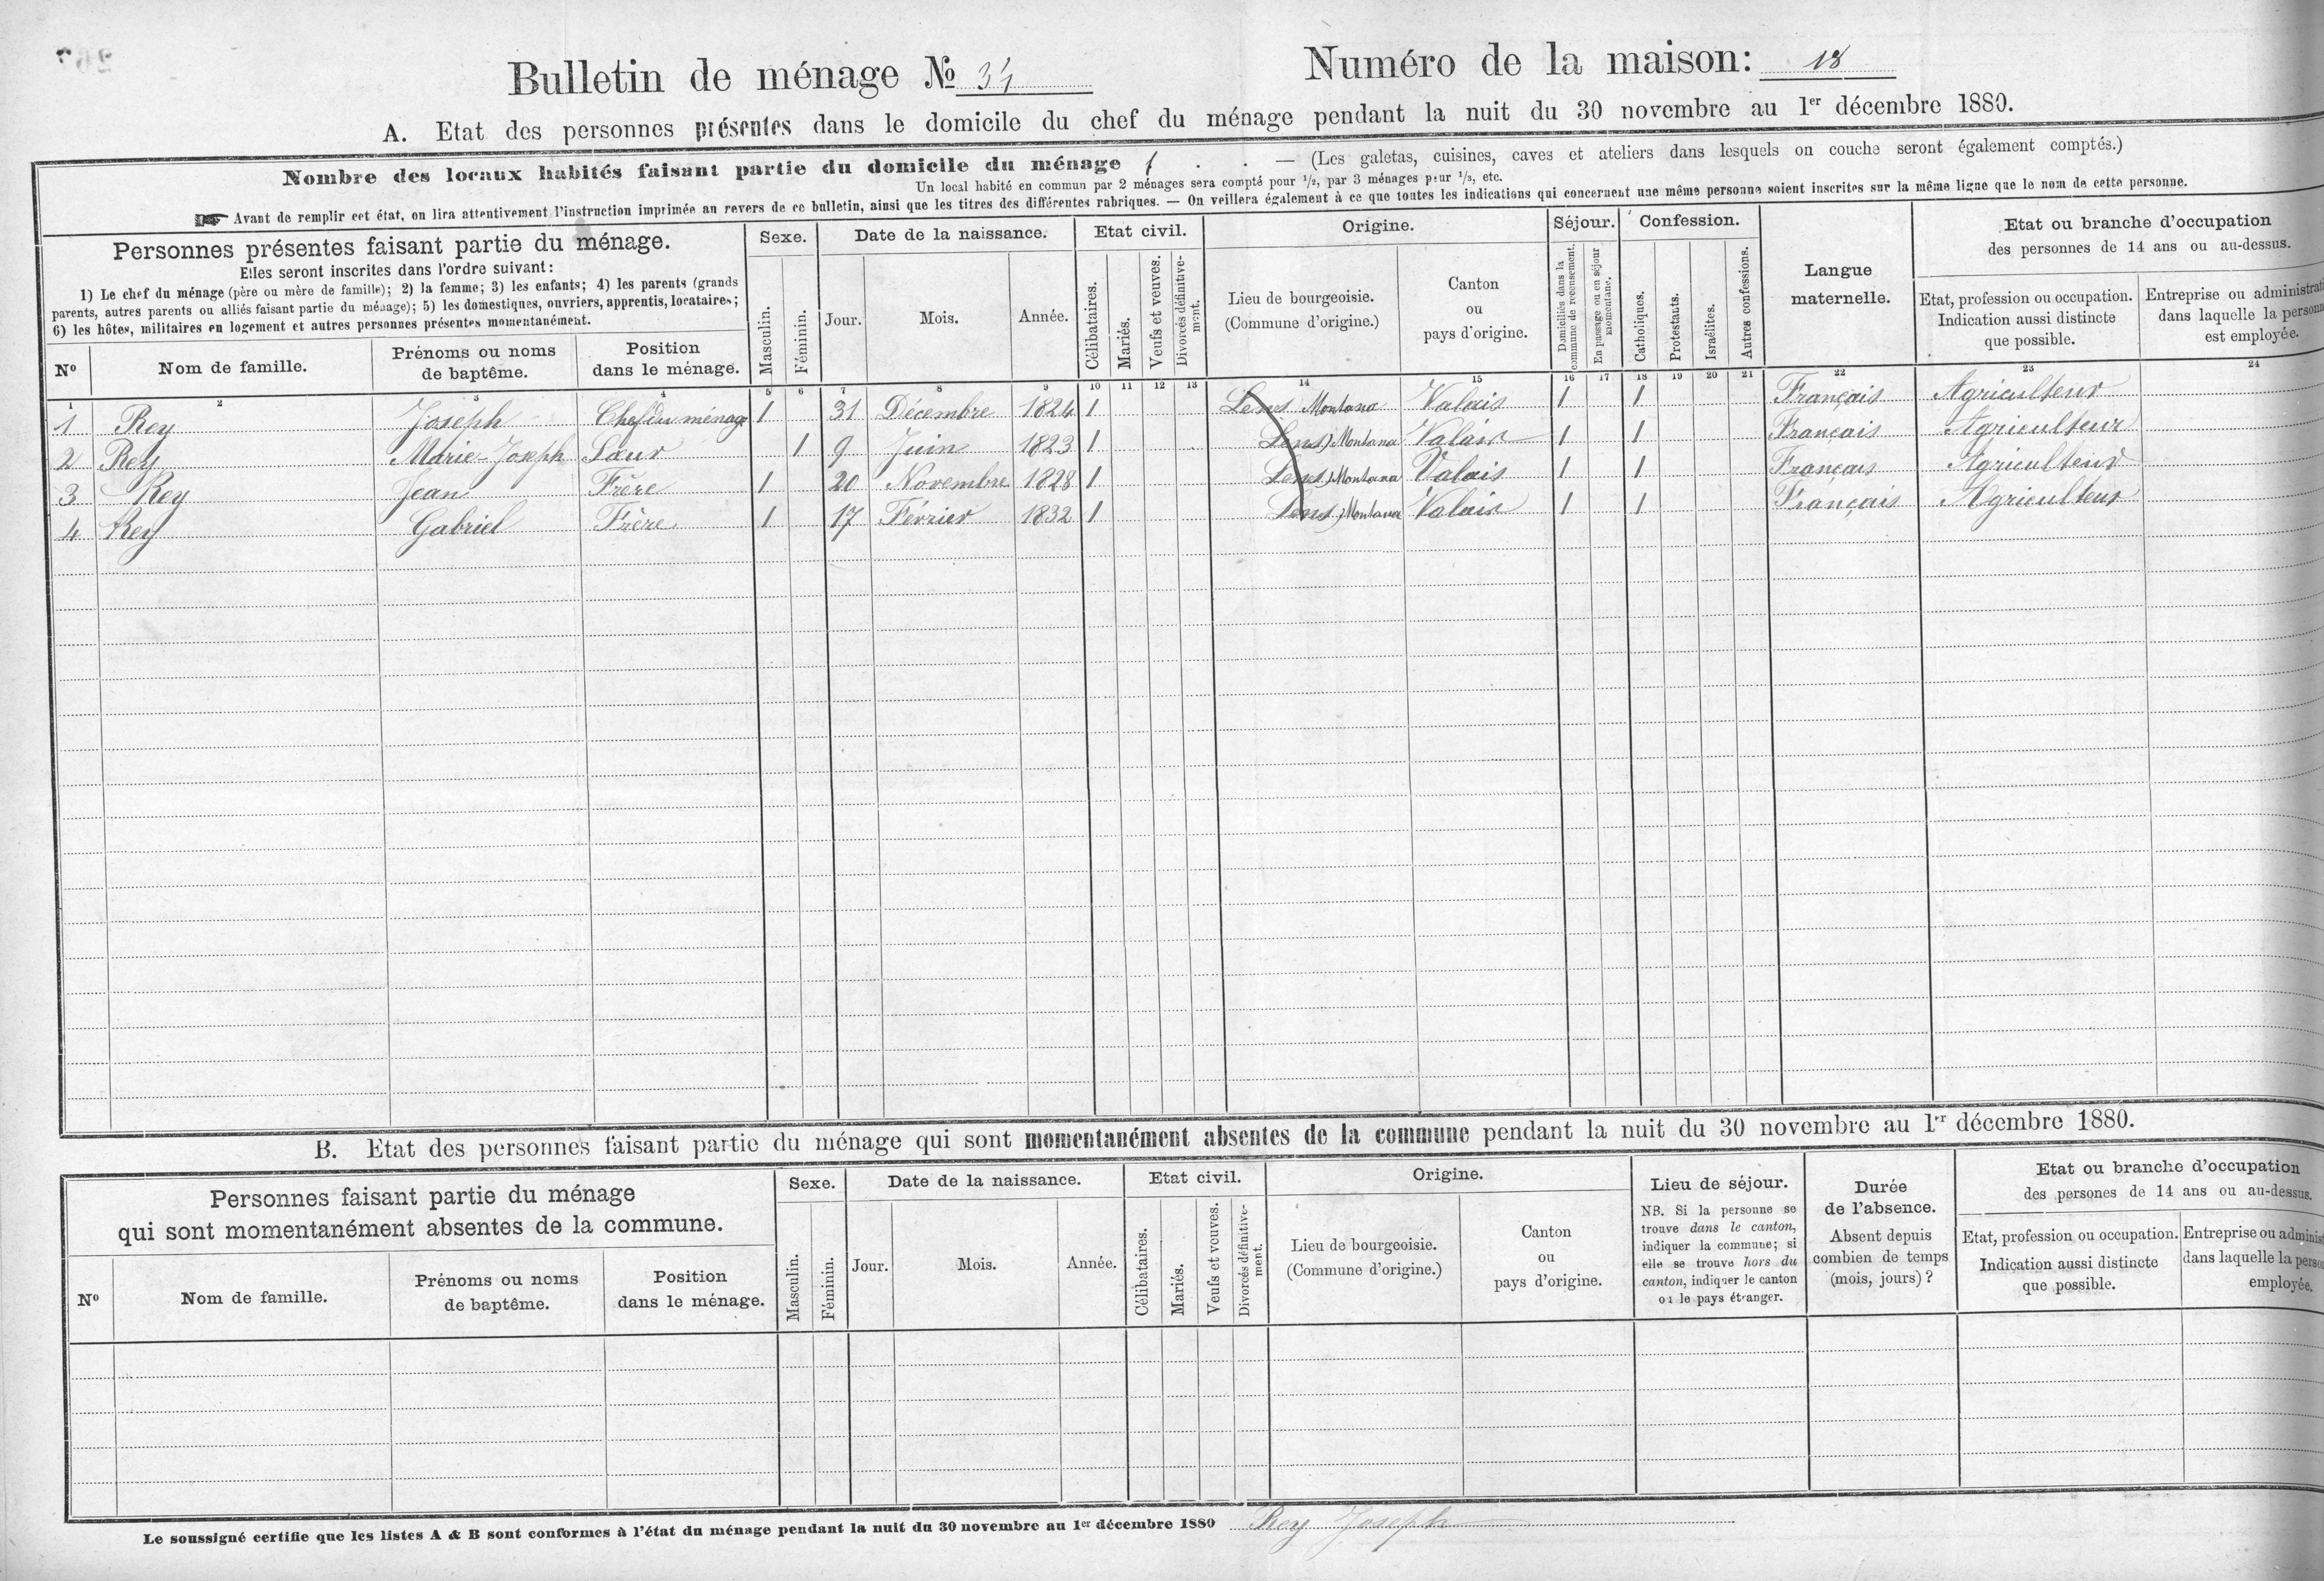 Bulletin de ménage No 34
Numéro de la maison: 18
A. Etat des personnes présentes dans le domicile du chef du ménage pendant la nuit du 30 novembre au 1er décembre 1880.
Nombre des locaux habités faisant partie du domicile du ménage 1 . . — (Les galetas, cuisines, caves et ateliers dans lesquels on couche seront également comptés.)
Un local habité en commun par 2 ménages sera compté pour 1/2, par 3 ménages pour 1/3, etc.
☞ Avant de remplir cet état, on lira attentivement l'instruction imprimée au revers de ce bulletin, ainsi que les titres des différentes rubriques. — On veillera également à ce que toutes les indications qui concernent une même personne soient inscrites sur la même ligne que le nom de cette personne.
Personnes présentes faisant partie du ménage.
Elles seront inscrites dans l'ordre suivant:
1) Le chef du ménage (père ou mère de famille); 2) la femme; 3) les enfants; 4) les parents (grands
parents, autres parents ou alliés faisant partie du ménage); 5) les domestiques, ouvriers, apprentis, locataires;
6) les hôtes, militaires en logement et autres personnes présentes momentanément.
No
Nom de famille.
Prénoms ou noms
de baptême.
Position
dans le ménage.
Sexe.
Masculin.
Féminin.
Date de la naissance.
Jour.
Mois.
Année.
Etat civil.
Célibataires.
Mariés.
Veufs et veuves.
Divorcés définitive-
ment.
Origine.
Lieu de bourgeoisie.
(Commune d'origine.)
Canton
ou
pays d'origine.
Séjour.
Domiciliés dans la
commune de recensement.
En passage ou en séjour
momentané.
Confession.
Catholiques.
Protestants.
Israélites.
Autres confessions.
Langue
maternelle.
Etat ou branche d'occupation
des personnes de 14 ans ou au-dessus.
Etat, profession ou occupation.
Indication aussi distincte
que possible.
Entreprise ou administrati
dans laquelle la personn
est employée.
1 2 3 4 5 6 7 8 9 10 11 12 13 14 15 16 17 18 19 20 21 22 23 24
1 Rey Joseph Chef du ménage 1 31 Décembre 1824 1 Lens Montana Valais 1 1 Français Agriculteur
2 Rey Marie-Joseph Sœur 1 9 Juin 1823 1 Lens Montana Valais 1 1 Français Agriculteur
3 Rey Jean Frère 1 20 Novembre 1828 1 Lens Montana Valais 1 1 Français Agriculteur
4 Rey Gabriel Frère 1 17 Février 1832 1 Lens Montana Valais 1 1 Français Agriculteur
B. Etat des personnes faisant partie du ménage qui sont momentanément absentes de la commune pendant la nuit du 30 novembre au 1er décembre 1880.
Personnes faisant partie du ménage
qui sont momentanément absentes de la commune.
No
Nom de famille.
Prénoms ou noms
de baptême.
Position
dans le ménage.
Sexe.
Masculin.
Féminin.
Date de la naissance.
Jour.
Mois.
Année.
Etat civil.
Célibataires.
Mariés.
Veufs et veuves.
Divorcés définitive-
ment.
Origine.
Lieu de bourgeoisie.
(Commune d'origine.)
Canton
ou
pays d'origine.
Lieu de séjour.
NB. Si la personne se
trouve dans le canton,
indiquer la commune; si
elle se trouve hors du
canton, indiquer le canton
ou le pays étranger.
Durée
de l'absence.
Absent depuis
combien de temps
(mois, jours)?
Etat ou branche d'occupation
des persones de 14 ans ou au-dessus.
Etat, profession ou occupation.
Indication aussi distincte
que possible.
Entreprise ou adminis
dans laquelle la perso
employée.
Le soussigné certifie que les listes A & B sont conformes à l'état du ménage pendant la nuit du 30 novembre au 1er décembre 1880 Rey Joseph